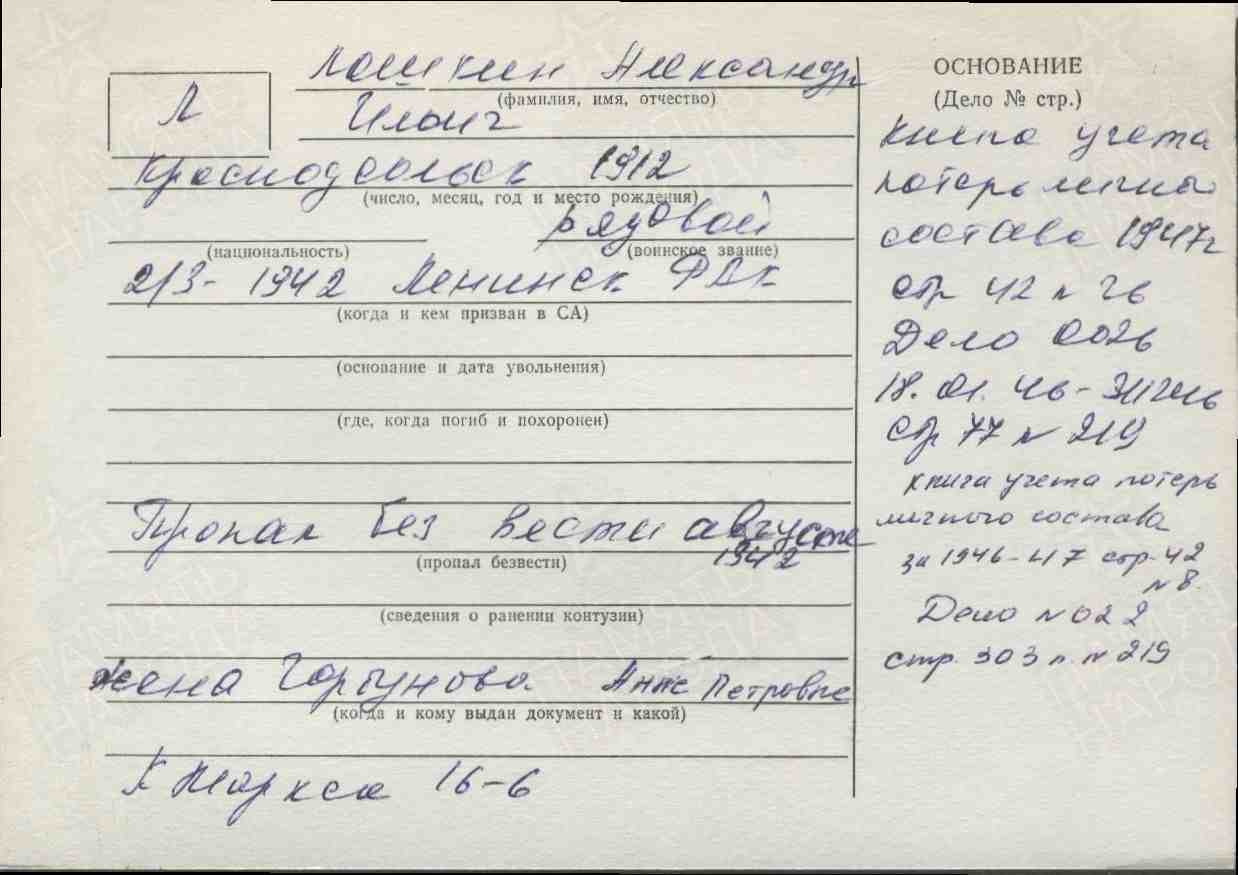 Л
Лошкин Александр
(фамилия, имя, отчество)
Ильич
Краснодсольск 1912
(число, месяц, год и место рождения)
Рядовой
(национальность) (воинское звание)
2/3- 1942 Ленинск РВК
(когда и кем призван в СА)
(основание и дата увольнения)
(где, когда погиб и похоронен)
Пропал без вести августе
1942
(пропал безвести)
(сведения о ранении контузии)
жена Горбунова Анна Петровна
(когда и кому выдан документ и какой)
К Маркса 16-6
ОСНОВАНИЕ
(Дело № стр.)
Книга учета
потерь личного
состава 1947г
стр 42 п 26
Дело 0026
18.01.46-
стр 77 № 219
книга учета потерь
личного состава
за 1946-47 стр-42
№ 8
Дело № 022
стр. 303 п. № 219